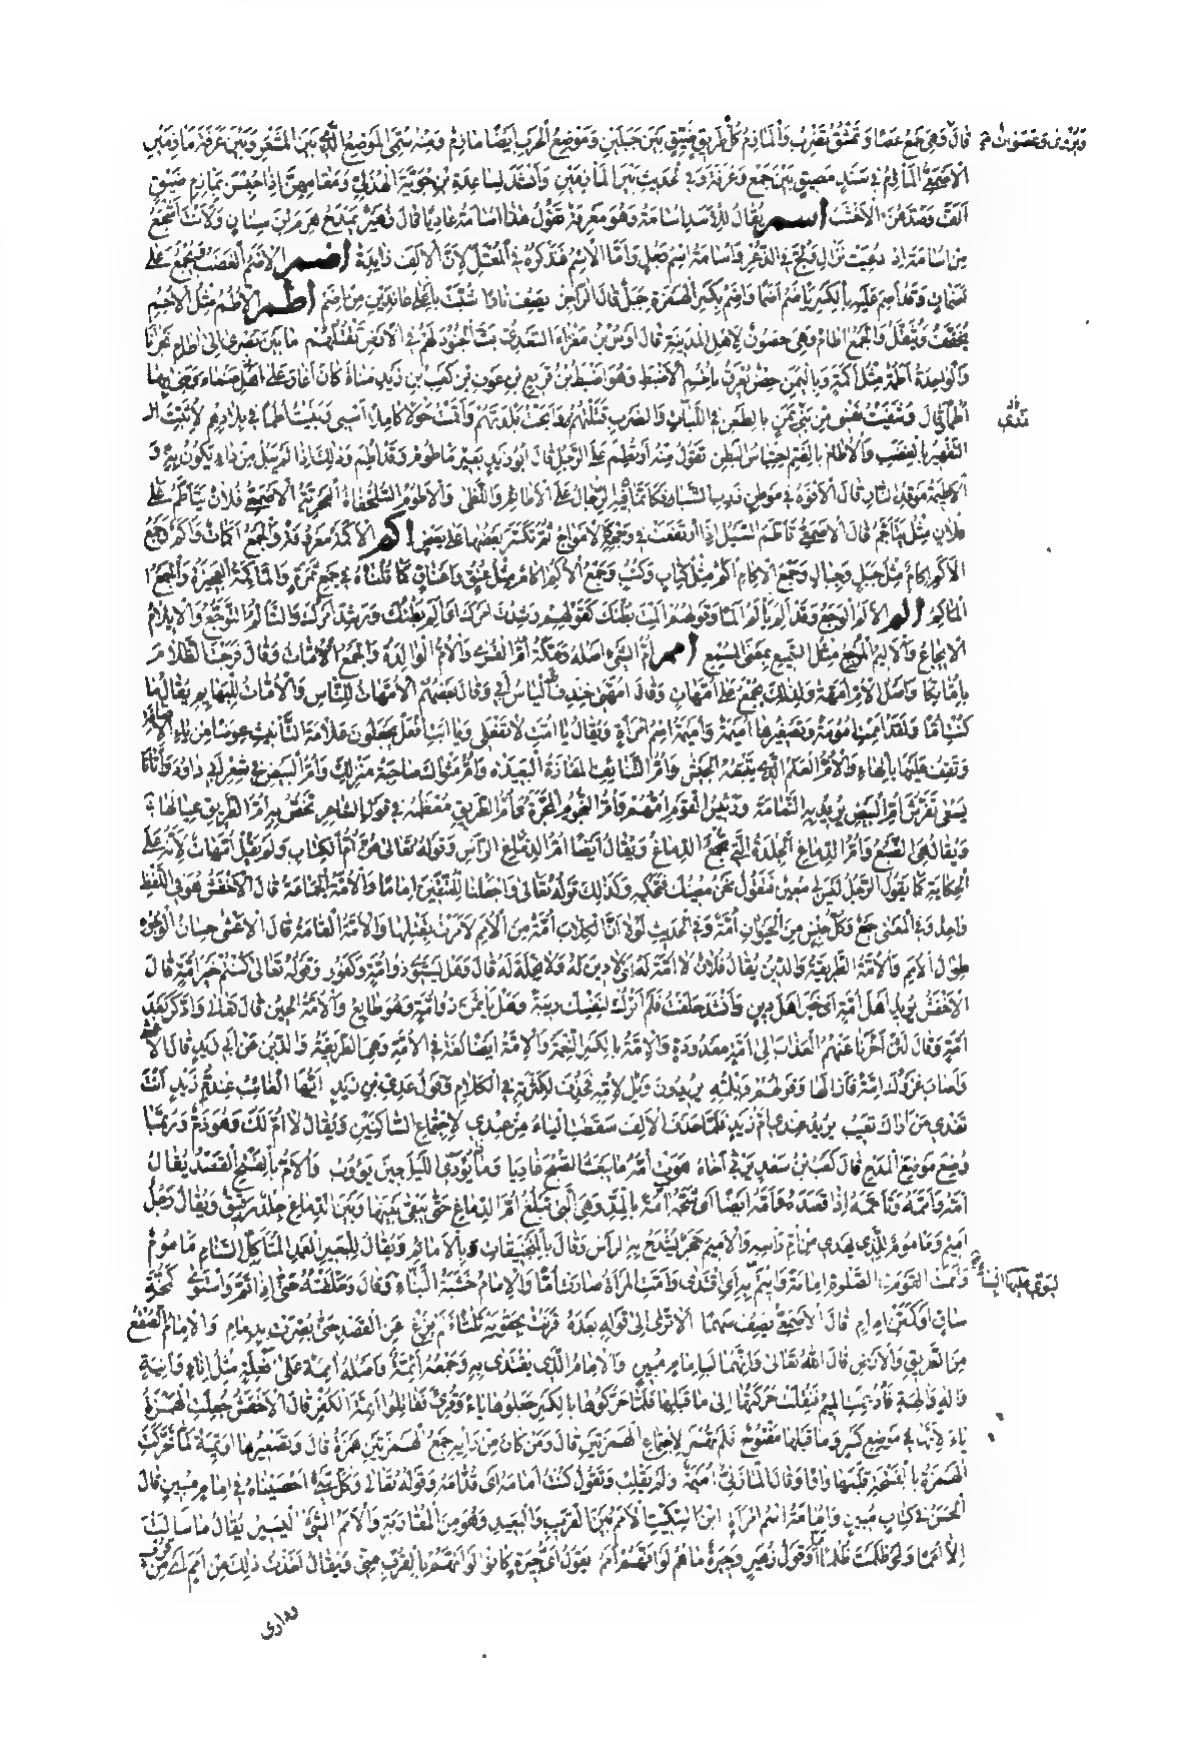 قال وهى جمع عصا وتمشق تضرب والمأزم كل طريق ضيق بين جبلين وموضع الحرب ايضا مأزم ومنه سمى الموضع الذى بين المشعر وبين عرفة مأزمين
الاصمعى المأزم فى سند مضيق بين جمع وعرفة وفى الحديث بين المأزمين وانشد لساعدة بن جؤية الهذلى ومقامهن اذا حبسن بمأزم ضيق
الف وصدهن الاخشب اسم يقال للاسد اسامة وهو معرفة تقول هذا اسامة عاديا قال زهير يمدح هرم بن سنان ولانت اشجع
من اسامة اذ دعيت نزال ولج فى الذعر واسامة اسم رجل واما الاسم فنذكره فى المعتل لان الالف زايدة اضم الاضم الغضب والجمع على
اضمات وقد اضم عليه بالكسر يأضم اضما واضم بكسر الهمزة جبل قال الراجز يصف نارا شبت باعلى عاندين من اضم اطم الاطم مثل الاجم
يخفف ويثقل والجمع آطام وهى حصون لاهل المدينة قال اوس بن مغراء السعدى بث الجنود لهم فى الارض تقتلهم ما بين بصرى الى آطام نجرانا
والواحدة اطمة مثل اكمة وباليمن حصن يعرف باطم الاضبط وهو اضبط بن قريع بن عوف بن كعب بن زيد مناة كان اغار على اهل صنعاء وبنى بها
اطما وقال وشفيت نفسى من ذوى يمن بالطعن فى اللبات والضرب قتلتهم وابحت بلدتهم واقمت حولا كاملا اسبى وبنيت اطما فى بلادهم لاثبت
التقهير بالغصب والاطام بالضم احتباس البطن تقول منه اوتطم على الرجل قال ابو زيد بعير مأطوم وقد اطم وذلك اذا لم يبل من داء يكون به و
الاطيمة موقد النار قال الافوه فى موطن ذرب الشبا فكانما فيه الرجال على الاطائم واللظى والاطوم السلحفاة البحرية الاصمعى فلان يتأطم على
فلان مثل يتأجم قال الاصمعى تأطم السيل اذا ارتفعت فى وجهه الامواج ثم تكسر بعضها على بعض اكم الاكمة معروفة والجمع اكمات واكم وجمع
الاكم اكام مثل جبل وجبال وجمع الاكام اكم مثل كتاب وكتب وجمع الاكم آكام مثل عنق واعناق كما قلناه فى جمع ثمرة والمأكمة العجيزة والجمع
المآكم الم الالم الوجع وقد الم يألم الما وقولهم المت بطنك كقولهم رشدت امرك اى الم بطنك ورشد امرك والتألم التوجع والايلام
الايجاع والاليم الموجع مثل السميع بمعنى المسمع امم ام الشىء اصله ومكة ام القرى والام الوالدة والجمع امات وقال فرجت الظلام
باماتكا واصل الام امهة ولذلك يجمع على امهات وقال امهتى خندف والياس ابى وقال بعضهم الامهات للناس والامات للبهائم يقال ما
كنت اما ولقد اممت امومة وتصغيرها اميمة واميمة اسم امرأة ويقال يا امت لا تفعلى ويا ابت افعل يجعلون علامة التأنيث عوضا من ياء الاضافة
وتقف عليها بالهاء والام العلم الذى يتبعه الجيش وام التنائف المفازة البعيدة وام مثواك صاحبة منزلك وام البيض فى شعر ابى دواد واتانا
يسعى تفرش ام البيض يريد به النعامة ورئيس القوم امهم وام النجوم المجرة وام الطريق معظمه فى قول الشاعر تخص به ام الطريق عيالها
ويقال هى الضبع وام الدماغ الجلدة التى تجمع الدماغ ويقال ايضا ام الدماغ الرأس وقوله تعالى هن ام الكتاب ولم يقل امهات لانه على
الحكاية كما يقول الرجل ليس لى معين فتقول نحن معينك فتحكيه وكذلك قوله تعالى واجعلنا للمتقين اماما والامة الجماعة قال الاخفش هو فى اللفظ
واحد وفى المعنى جمع وكل جنس من الحيوان امة وفى الحديث لولا ان الكلاب امة من الامم لامرت بقتلها والامة القامة قال الاعشى حسان الوجوه
طوال الامم والامة الطريقة والدين يقال فلان لا امة له اى لا دين له ولا نحلة له قال وهل يستوى ذو امة وكفور وقوله تعالى كنتم خير امة قال
الاخفش يريد اهل امة اى خير اهل دين وانشد حلفت فلم اترك لنفسك ريبة وهل يأثمن ذو امة وهو طايع والامة الحين قال تعالى وادكر بعد
امة وقال ولئن اخرنا عنهم العذاب الى امة معدودة والامة بالكسر النعمة والامة ايضا لغة فى الامة وهى الطريقة والدين عن ابى زيد قال الاعشى
ولقد جررت الى الغنى ذا فاقة واصاب غزوك امة فازالها وقولهم ويلمه يريدون ويل لامه فحذفت لكثرته فى الكلام وقول عدى بن زيد ايها العائب عندم زيد انت
تفدى من اراك تعيب يريد عندى ام زيد فلما حذف الالف سقطت الياء من عندى لاجتماع الساكنين ويقال لا ام لك وهو ذم وربما
وضع موضع المدح قال كعب بن سعد يرثى اخاه هوت امه ما يبعث الصبح غاديا وماذا يؤدى الليل حين يؤوب والام بالفتح القصد يقال
امه واممه وتأممه اذا قصده وامه ايضا اى شجه آمة بالمد وهى التى تبلغ ام الدماغ حتى يبقى بينها وبين الدماغ جلد رقيق ويقال رجل
اميم ومأموم للذى يهذى من ام رأسه والاميم حجر يشدخ به الرأس وقال بالمنجنيقات وبالامائم ويقال للبعير العمد المتأكل السنام مأموم
واممت القوم فى الصلوة امامة وائتم به اى اقتدى وامت المرأة صارت اما والامام خشبة البناء وقال وخلقته حتى اذا تم واستوى كمخة
ساق او كمتن امام قال الاصمعى يصف سهما الا ترى الى قوله بعده قرنت بحقويه ثلاثا فلم يزغ عن القصد حتى بصرت بدمام والامام الصقع
من الطريق والارض قال الله تعالى وانهما لبامام مبين والامام الذى يقتدى به وجمعه ائمة واصله اءممة على افعلة مثل اناء وآنية
واله وآلهة فادغمت الميم فنقلت حركتها الى ما قبلها فلما حركوها بالكسر جعلوها ياء وقرئ فقاتلوا ائمة الكفر قال الاخفش جعلت الهمزة
ياء لانها فى موضع كسر وما قبلها مفتوح فلم تهمز لاجتماع الهمزتين قال ومن كان من رايه جمع الهمزتين همزة قال وتصغيرها اويمة لما تحركت
الهمزة بالفتحة قلبها واوا وقال المازنى اييمة ولم يقلب وتقول كنت امامه اى قدامه وقوله تعالى وكل شىء احصيناه فى امام مبين قال
الحسن فى كتاب مبين وامامة اسم امرأة ابن السكيت الامم بين القريب والبعيد وهو من المقاربة والامم الشىء اليسير يقال ما سألت
الا امما ولو ظلمت ظلما امما وقول زهير وجيرة ما هم لو انهم امم يقول اى جيرة كانوا لو انهم بالقرب منى ويقال اخذت ذلك من امم اى من قرب
ودارى